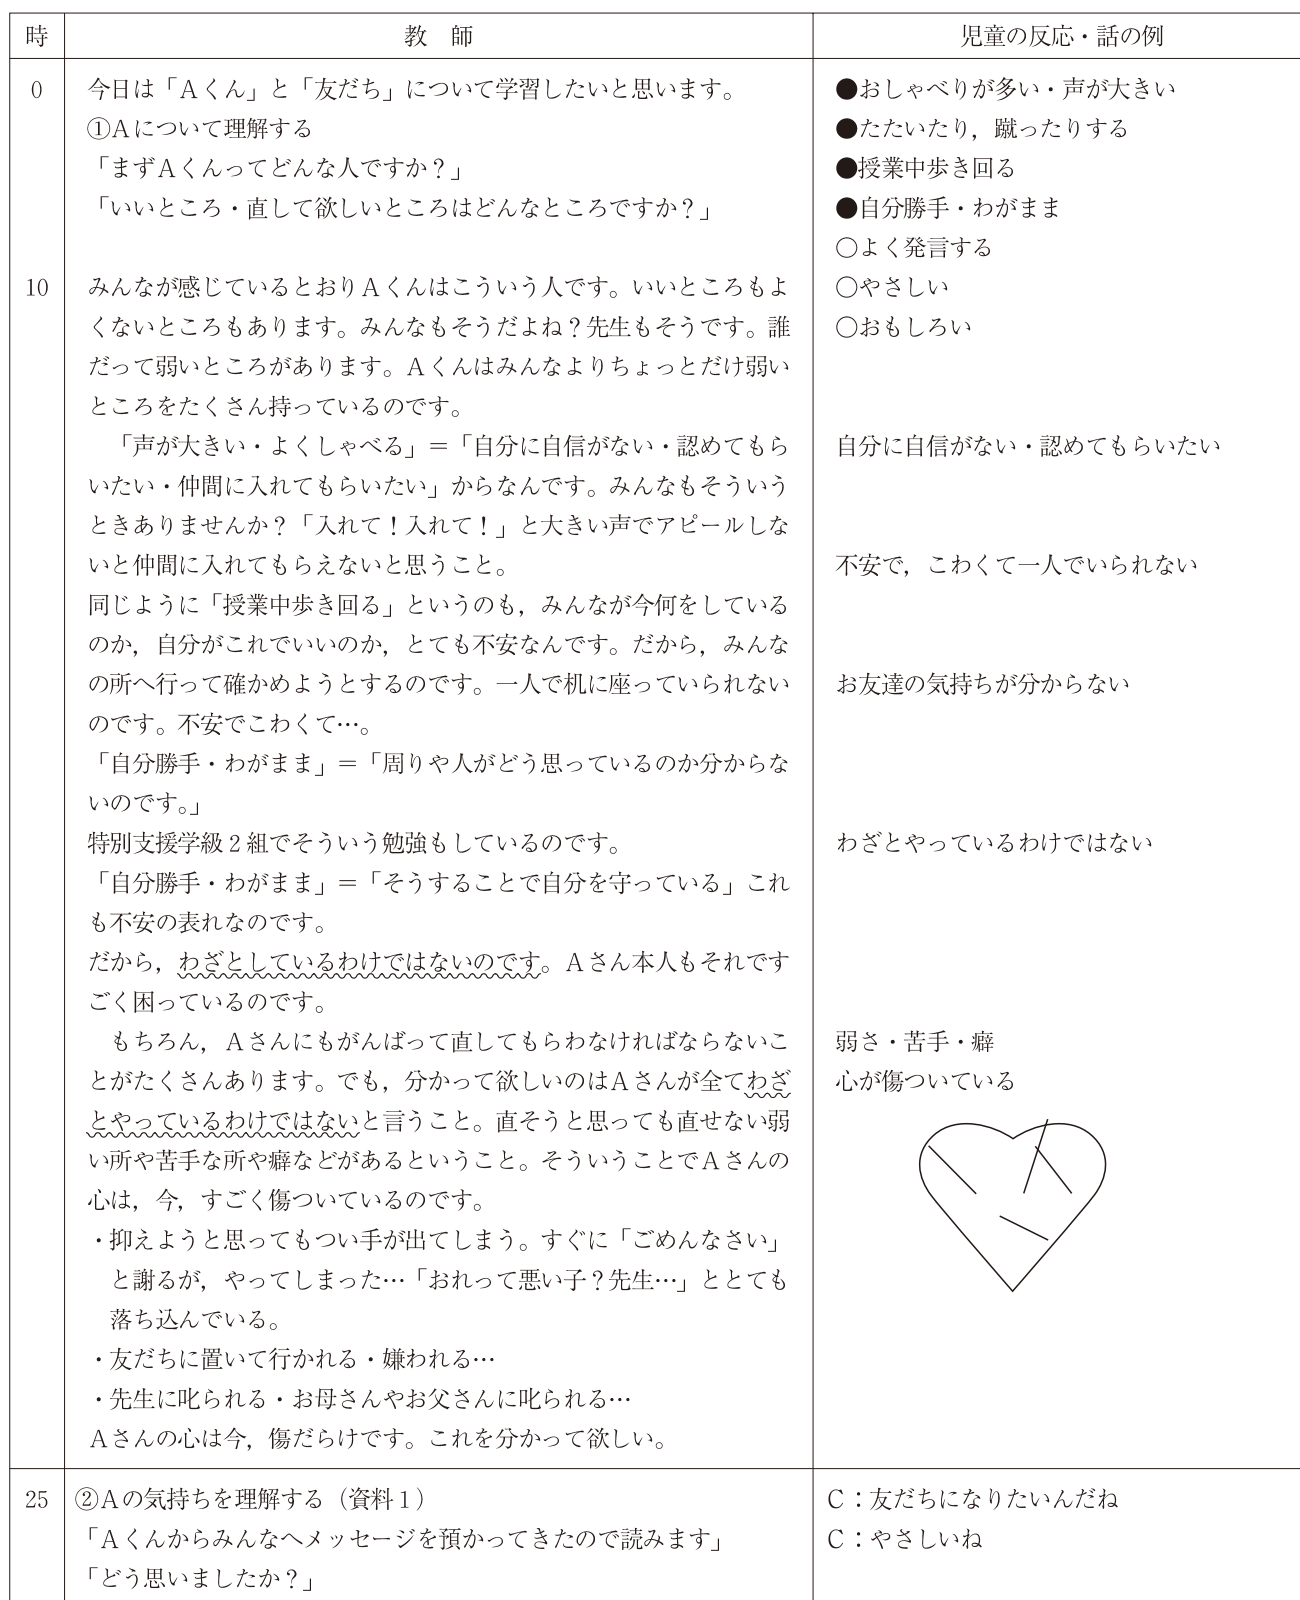 時
教　師
児童の反応・話の例
0
今日は「Ａくん」と「友だち」について学習したいと思います。
①Ａについて理解する
「まずＡくんってどんな人ですか？」
「いいところ・直して欲しいところはどんなところですか？」
●おしゃべりが多い・声が大きい
●たたいたり，蹴ったりする
●授業中歩き回る
●自分勝手・わがまま
○よく発言する
○やさしい
○おもしろい
10
みんなが感じているとおりＡくんはこういう人です。いいところもよ
くないところもあります。みんなもそうだよね？先生もそうです。誰
だって弱いところがあります。Ａくんはみんなよりちょっとだけ弱い
ところをたくさん持っているのです。
「声が大きい・よくしゃべる」＝「自分に自信がない・認めてもら
いたい・仲間に入れてもらいたい」からなんです。みんなもそういう
ときありませんか？「入れて！入れて！」と大きい声でアピールしな
いと仲間に入れてもらえないと思うこと。
同じように「授業中歩き回る」というのも，みんなが今何をしている
のか，自分がこれでいいのか，とても不安なんです。だから，みんな
の所へ行って確かめようとするのです。一人で机に座っていられない
のです。不安でこわくて…。
「自分勝手・わがまま」＝「周りや人がどう思っているのか分からな
いのです。」
特別支援学級２組でそういう勉強もしているのです。
「自分勝手・わがまま」＝「そうすることで自分を守っている」これ
も不安の表れなのです。
だから，わざとしているわけではないのです。Ａさん本人もそれです
ごく困っているのです。
もちろん，Ａさんにもがんばって直してもらわなければならないこ
とがたくさんあります。でも，分かって欲しいのはＡさんが全てわざ
とやっているわけではないと言うこと。直そうと思っても直せない弱
い所や苦手な所や癖などがあるということ。そういうことでＡさんの
心は，今，すごく傷ついているのです。
・抑えようと思ってもつい手が出てしまう。すぐに「ごめんなさい」
と謝るが，やってしまった…「おれって悪い子？先生…」ととても
落ち込んでいる。
・友だちに置いて行かれる・嫌われる…
・先生に叱られる・お母さんやお父さんに叱られる…
Ａさんの心は今，傷だらけです。これを分かって欲しい。
自分に自信がない・認めてもらいたい
不安で，こわくて一人でいられない
お友達の気持ちが分からない
わざとやっているわけではない
弱さ・苦手・癖
心が傷ついている
25
②Ａの気持ちを理解する（資料１）
「Ａくんからみんなへメッセージを預かってきたので読みます」
「どう思いましたか？」
Ｃ：友だちになりたいんだね
Ｃ：やさしいね